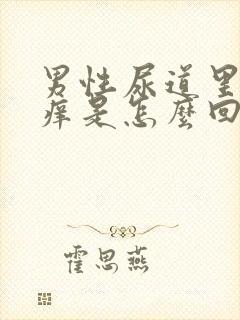 男性尿道里
痒是怎麼回
霍思燕